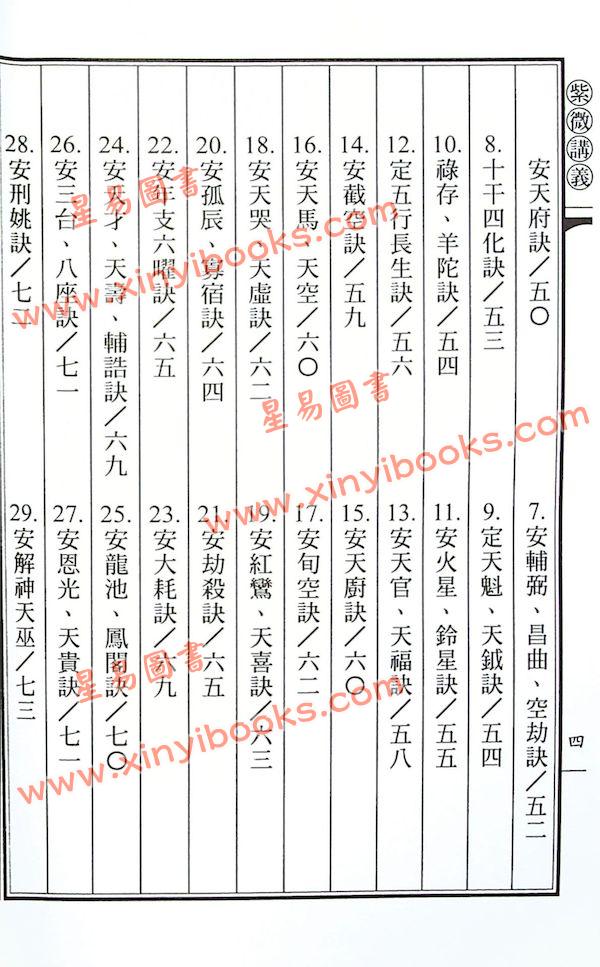 紫微講義
四
安天府訣／五〇
7.安輔弼、昌曲、空劫訣／五二
8.十干四化訣／五三
9.定天魁、天鉞訣／五四
10.祿存、羊陀訣／五四
11.安火星、鈴星訣／五五
12.定五行長生訣／五六
13.安天官、天福訣／五八
14.安截空訣／五九
15.安天廚訣／六〇
16.安天馬、天空／六〇
17.安旬空訣／六二
18.安天哭、天虛訣／六二
19.安紅鸞、天喜訣／六三
20.安孤辰、寡宿訣／六四
21.安劫殺訣／六五
22.安年支六曜訣／六五
23.安大耗訣／六九
24.安天才、天壽、輔誥訣／六九
25.安龍池、鳳閣訣／七〇
26.安三台、八座訣／七一
27.安恩光、天貴訣／七一
28.安刑姚訣／七二
29.安解神天巫／七三
星易圖書
www.xinyibooks.com
星易圖書
www.xinyibooks.com
星易圖書
www.xinyibooks.com